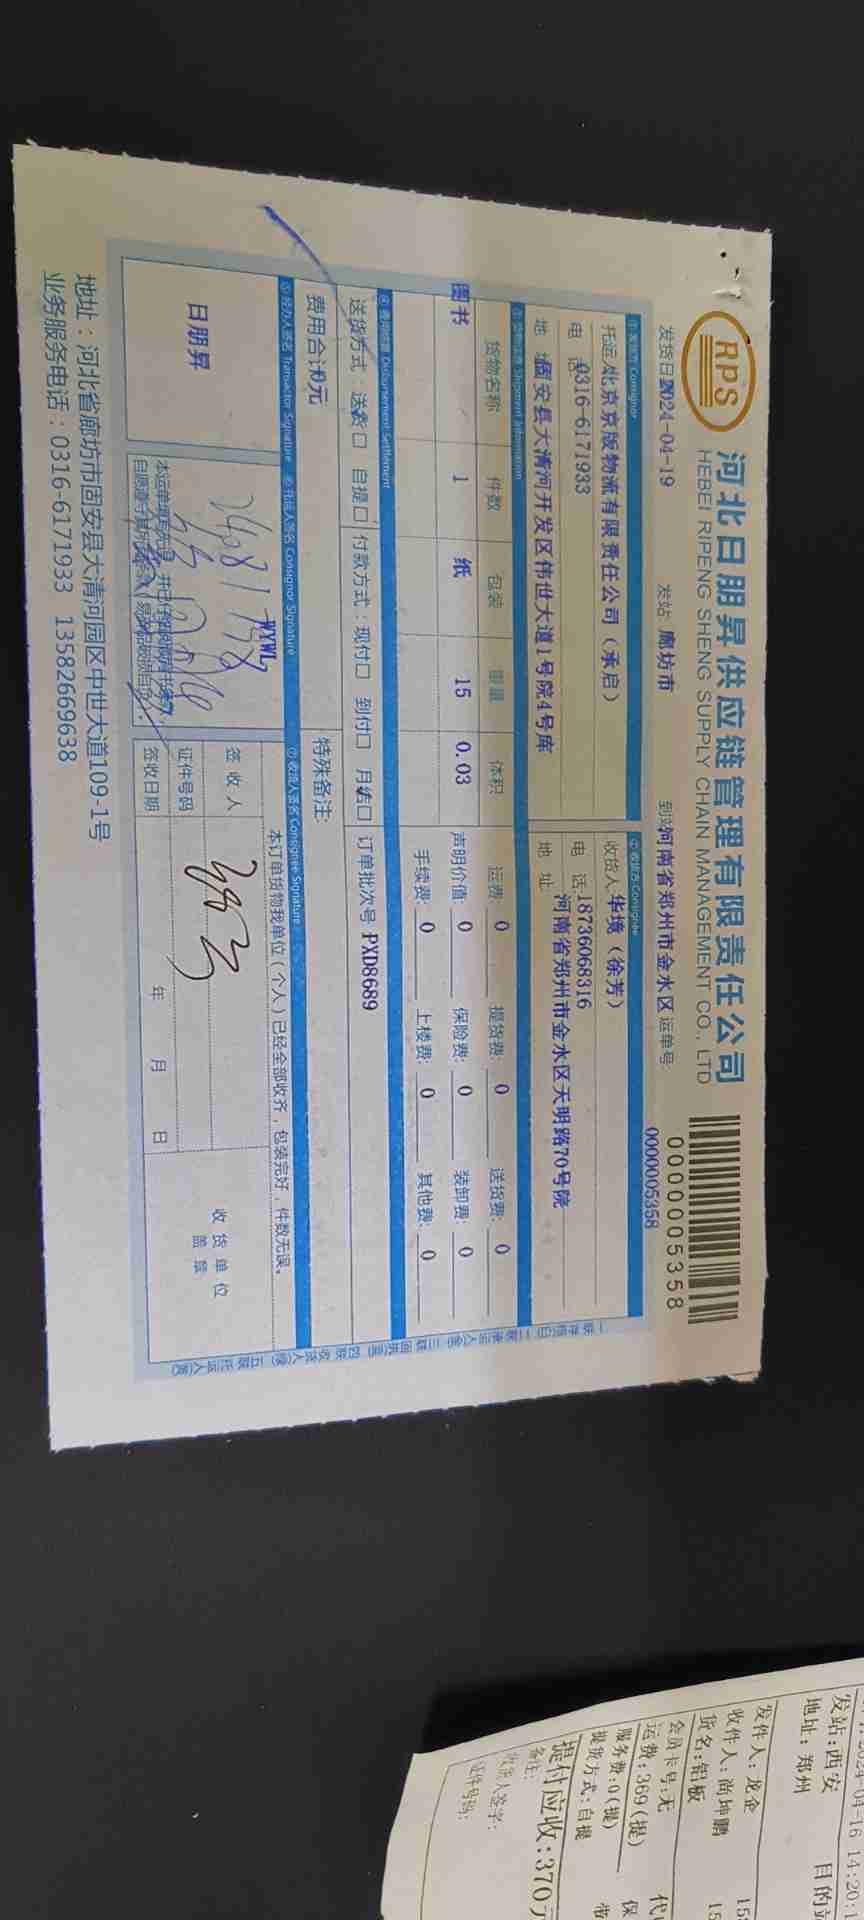 RPS
河北日朋昇供应链管理有限责任公司
HEBEI RIPENG SHENG SUPPLY CHAIN MANAGEMENT CO., LTD
0000005358
发货日 2024-04-19 发站 廊坊市 到站 河南省郑州市金水区 运单号 0000005358
①发货方 Consignor ②收货方 Consignee
托运 北京京版物流有限责任公司（承启） 收货人 华境（徐芳）
电 话 0316-6171933 电 话:18736068316
地 固安县大清河开发区伟世大道1号院4号库 地 址 河南省郑州市金水区天明路70号院
③货物信息 Shipment Information
货物名称 件数 包装 重量 体积 运费: 0 提货费: 0 送货费: 0
图书 1 纸 15 0.03 声明价值: 0 保险费: 0 装卸费: 0
手续费: 0 上楼费: 0 其他费: 0
④费用结算 Disbursement Settlement
送货方式：送货口 自提口 付款方式：现付口 到付口 月结口 订单批次号 PXD8689
费用合计0元 特殊备注:
⑤经办人签名 Transactor Signature ⑥托运人签名 Consignor Signature ⑦收货人签名 Consignee Signature
日朋昇
WYWL
本订单货物我单位（个人）已经全部收齐，包装完好，件数无误。
签收人
证件号码
签收日期 年 月 日
收货单位
盖章
地址：河北省廊坊市固安县大清河园区中世大道109-1号
业务服务电话：0316-6171933 13582669638
04-16 14:20:1
发站:西安 目的站
地址: 郑州
发件人: 龙企
收件人: 尚坤鹏
货名:铝板
会员卡号:无
运费:369(提)
服务费:0(提) 保
提货方式:自提
提付应收:370
备注:
收货人签字:
证件号码: